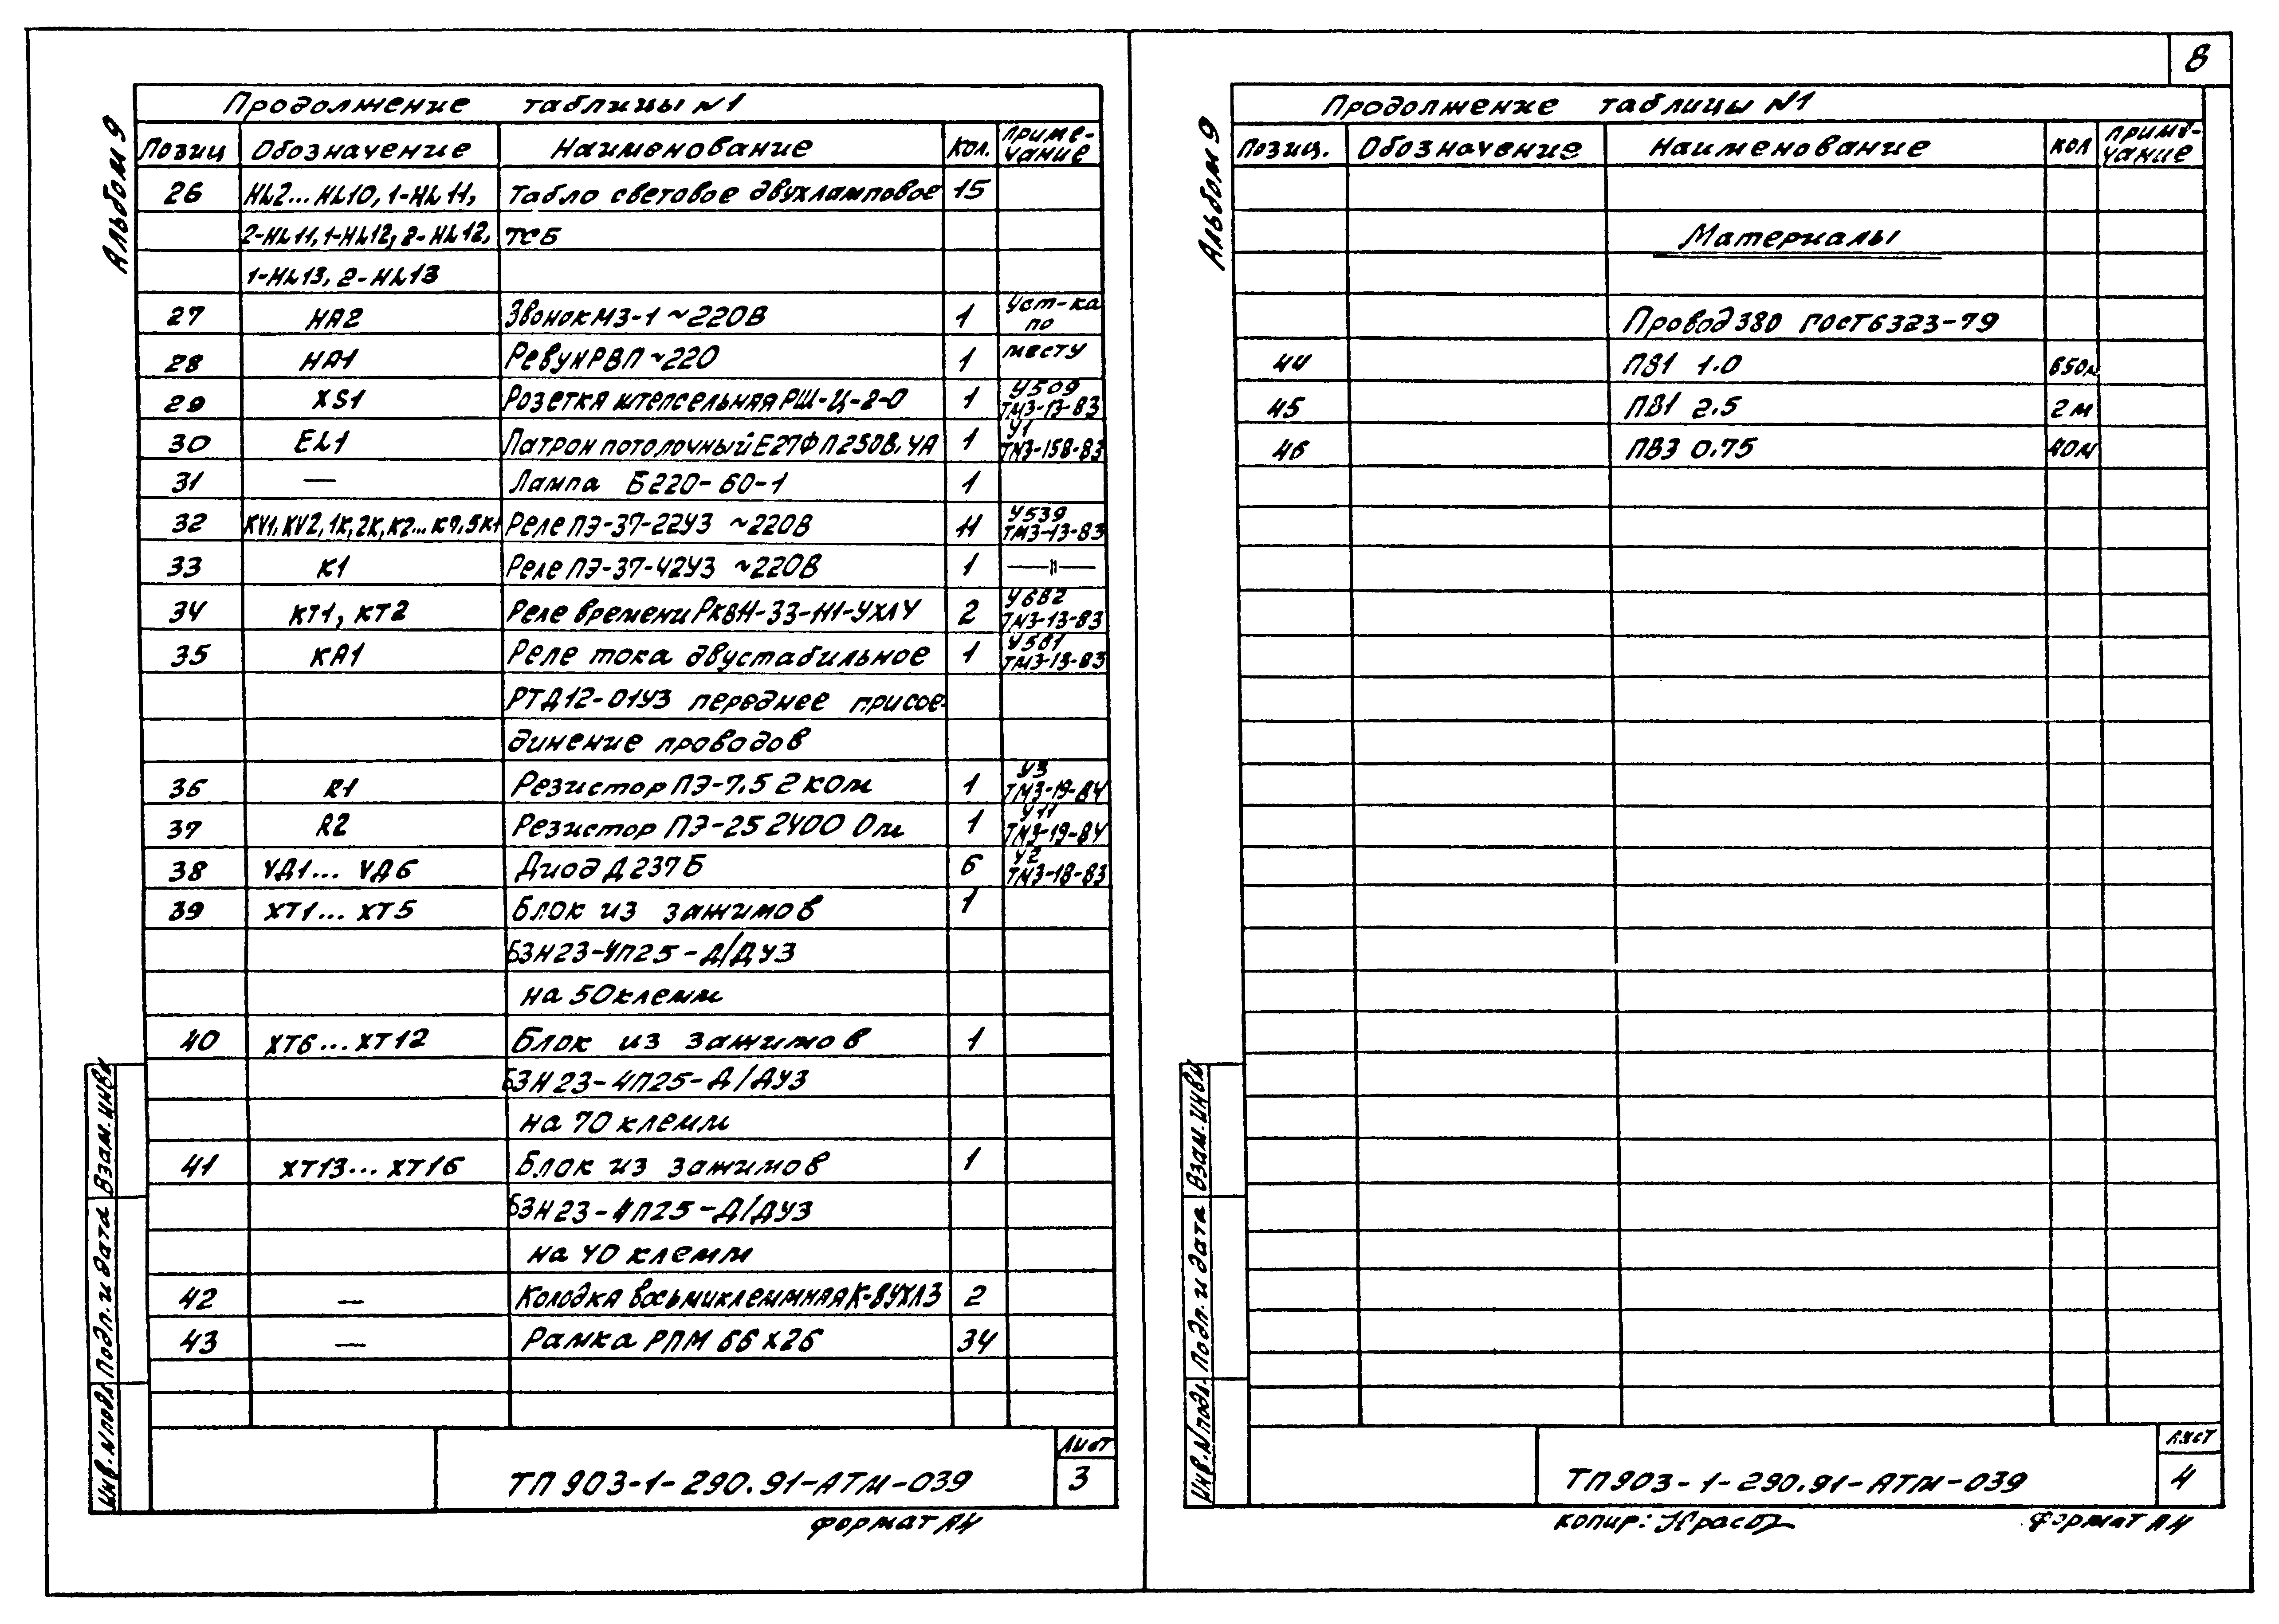 8
Альбом 9
Продолжение таблицы N1
Позиц Обозначение Наименование Кол. Приме-
чание
26 HL2...HL10, 1-HL11, Табло световое двухламповое 15
2-HL11, 1-HL12, 2-HL12, ТСБ
1-HL13, 2-HL13
27 HA2 Звонок МЗ-1 ~220В 1 Уст-ка
по
28 HA1 Ревун РВП ~220 1 месту
29 XS1 Розетка штепсельная РШ-Ц-2-0 1 У509
ТМ3-13-83
30 EL1 Патрон потолочный Е27ФП 250В, 4А 1 У1
ТМ3-158-83
31 — Лампа Б220-60-1 1
32 KV1, KV2, 1K, 2K, K2...K9, 5K1 Реле ПЭ-37-22У3 ~220В 11 У539
ТМ3-13-83
33 K1 Реле ПЭ-37-42У3 ~220В 1 —"—
34 KT1, KT2 Реле времени РКВН-33-Н1-УХЛ4 2 У682
ТМ3-13-83
35 KA1 Реле тока двустабильное 1 У581
ТМ3-13-83
РТД12-01У3 переднее присое-
динение проводов
36 R1 Резистор ПЭ-7,5 2 кОм 1 У3
ТМ3-19-84
37 R2 Резистор ПЭ-25 2400 Ом 1 У11
ТМ3-19-84
38 VД1... VД6 Диод Д237Б 6 У2
ТМ3-18-83
39 XT1... XT5 Блок из зажимов 1
БЗН23-4П25-Д/ДУ3
на 50 клемм
40 XT6...XT12 Блок из зажимов 1
БЗН23-4П25-Д/ДУ3
на 70 клемм
41 XT13... XT16 Блок из зажимов 1
БЗН23-4П25-Д/ДУ3
на 40 клемм
42 — Колодка восьмиклеммная К-8УХЛ3 2
43 — Рамка РПМ 66х26 34
Инв.N подл. Подп. и дата Взам.инв.N
ТП 903-1-290.91-АТМ-039
Лист
3
Формат А4
Альбом 9
Продолжение таблицы N1
Позиц. Обозначение Наименование Кол Приме-
чание
Материалы
Провод 380 ГОСТ 6323-79
44 ПВ1 1.0 650м
45 ПВ1 2.5 2м
46 ПВ3 0.75 40м
Инв.N подл. Подп. и дата Взам.инв.N
ТП 903-1-290.91-АТМ-039
Лист
4
копир: Формат А4